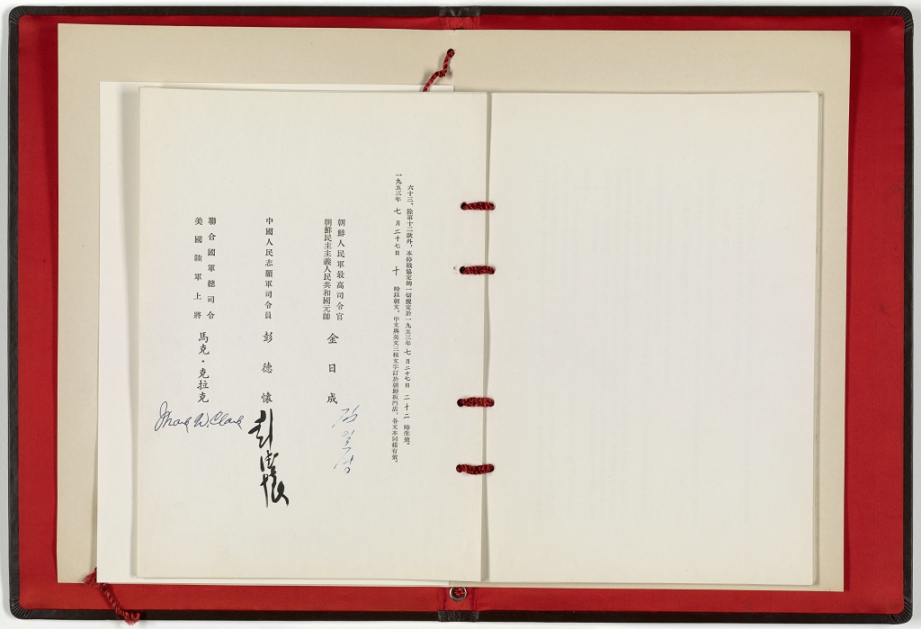 六十三、除第十二款外，本停戰協定的一切規定於一九五三年 七月二十七日 二十二 時生效。
一九五三年 七 月 二十七日 十 時以朝鮮文，中文與英文三種文字訂於朝鮮板門店，各文本同樣有效。
朝鮮人民軍最高司令官
朝鮮民主主義人民共和國元帥
金日成
김일성
中國人民志願軍司令員
彭德懷
彭德懷
聯合國軍總司令
美國陸軍上將
馬克·克拉克
Mark W. Clark